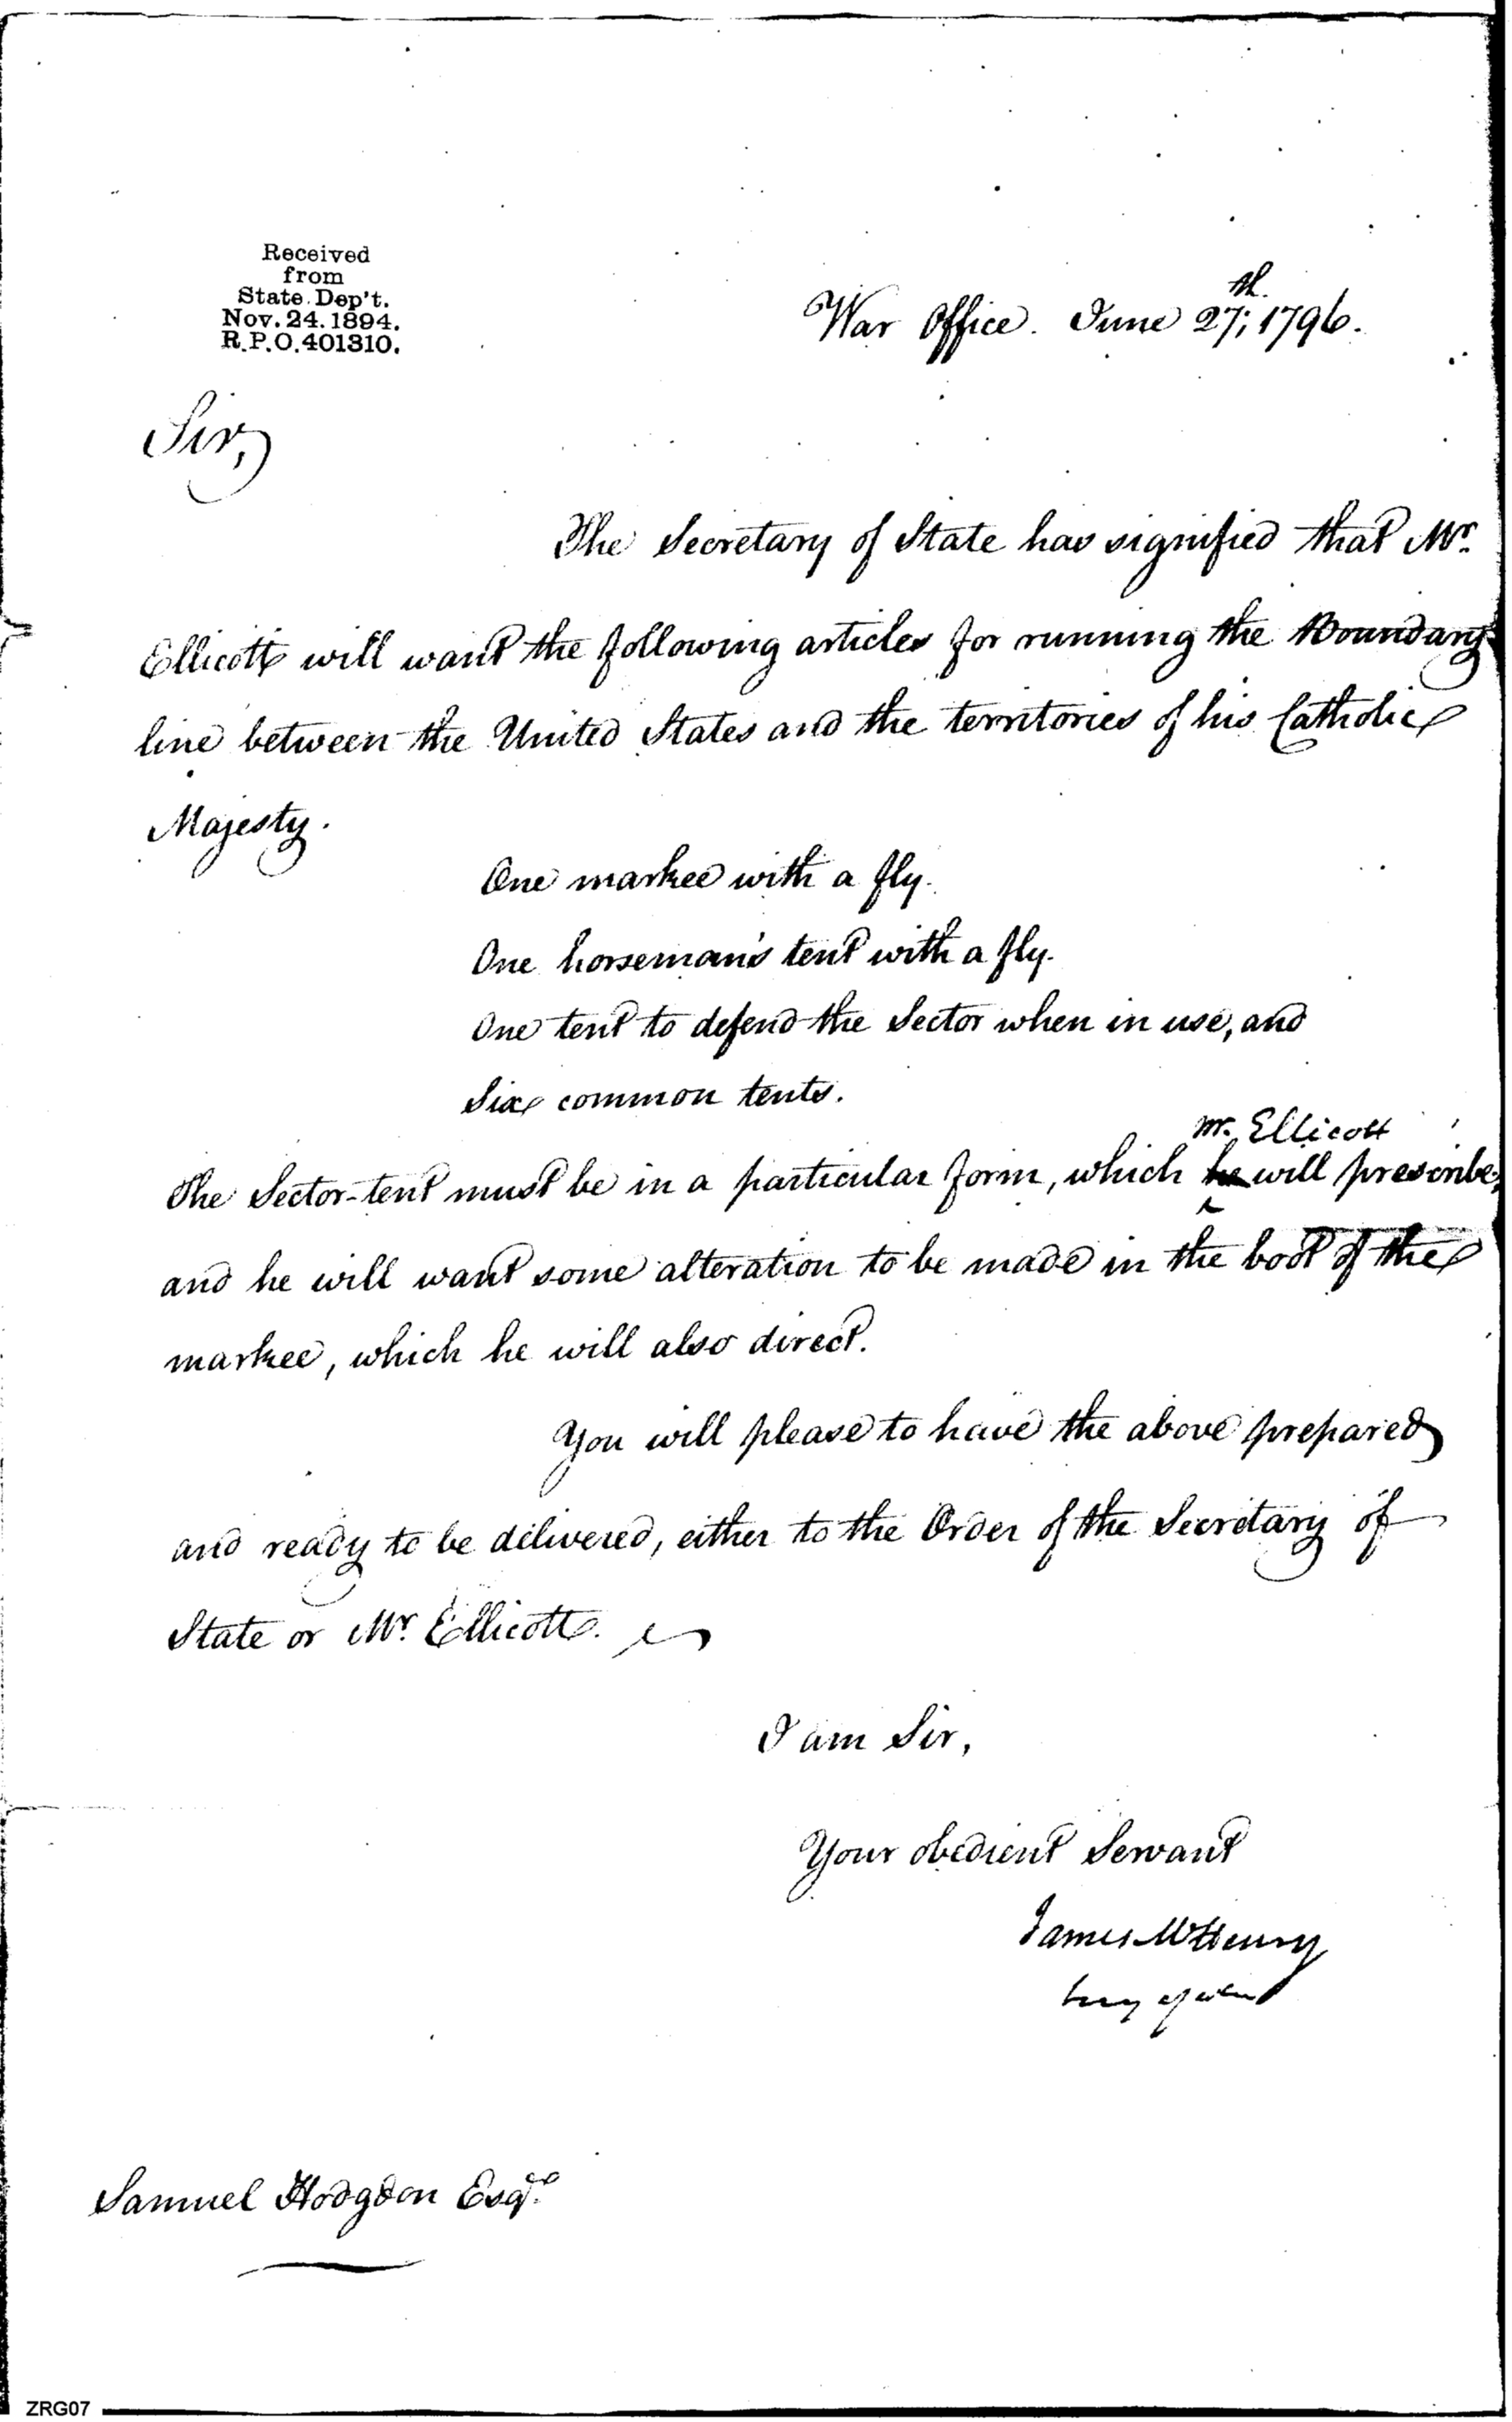 Received
from
State Dep't.
Nov. 24. 1894.
R.P.O. 401310.
War Office. June 27th; 1796.
Sir,
The Secretary of State has signified that Mr.
Ellicott will want the following articles for running the Boundary
line between the United States and the territories of his Catholic
Majesty.
One markee with a fly.
One horseman's tent with a fly.
One tent to defend the Sector when in use, and
Six common tents.
Mr. Ellicott
The Sector-tent must be in a particular form, which he will prescribe,
and he will want some alteration to be made in the boot of the
markee, which he will also direct.
You will please to have the above prepared
and ready to be delivered, either to the Order of the Secretary of
State or Mr. Ellicott.
I am Sir,
Your obedient Servant
James McHenry
Secy of war
Samuel Hodgdon Esqre.
ZRG07